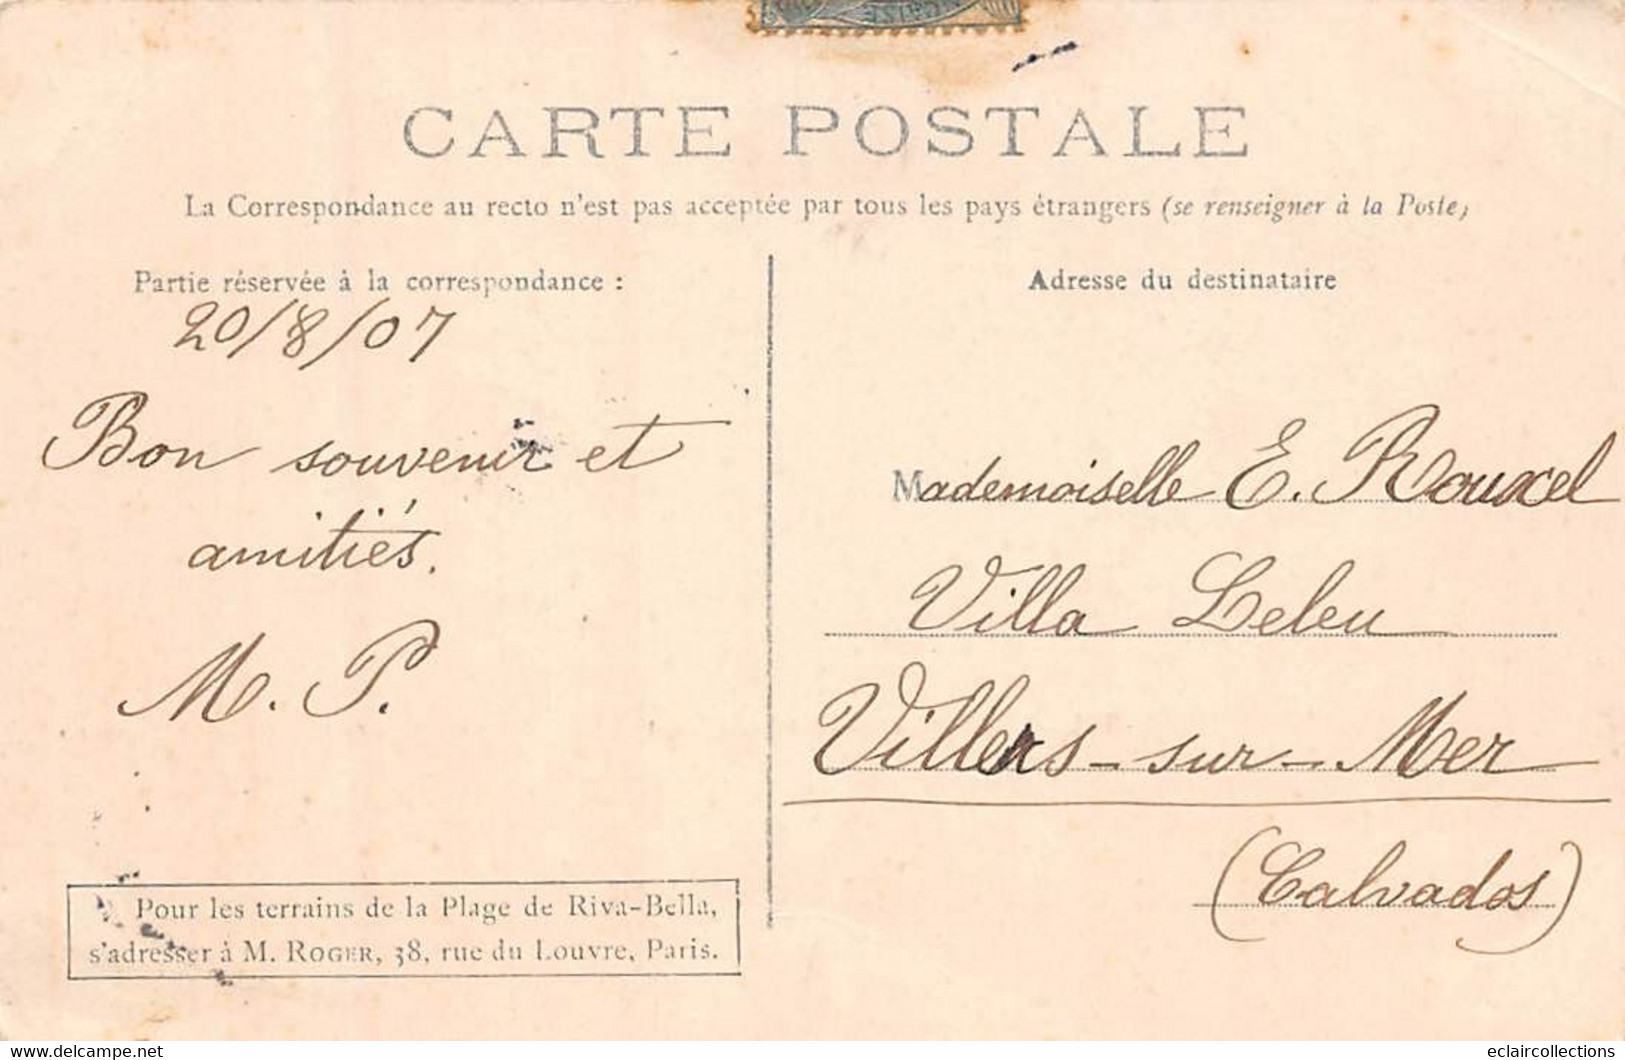 CARTE POSTALE
La Correspondance au recto n'est pas acceptée par tous les pays étrangers (se renseigner à la Poste)
Partie réservée à la correspondance :
20/8/07
Bon souvenir et
amitiés.
M. P.
Pour les terrains de la Plage de Riva-Bella,
s'adresser à M. ROGER, 38, rue du Louvre, Paris.
Adresse du destinataire
Mademoiselle E. Rouxel
Villa Leleu
Villers-sur-Mer
(Calvados)
delcampe.net
eclaircollections